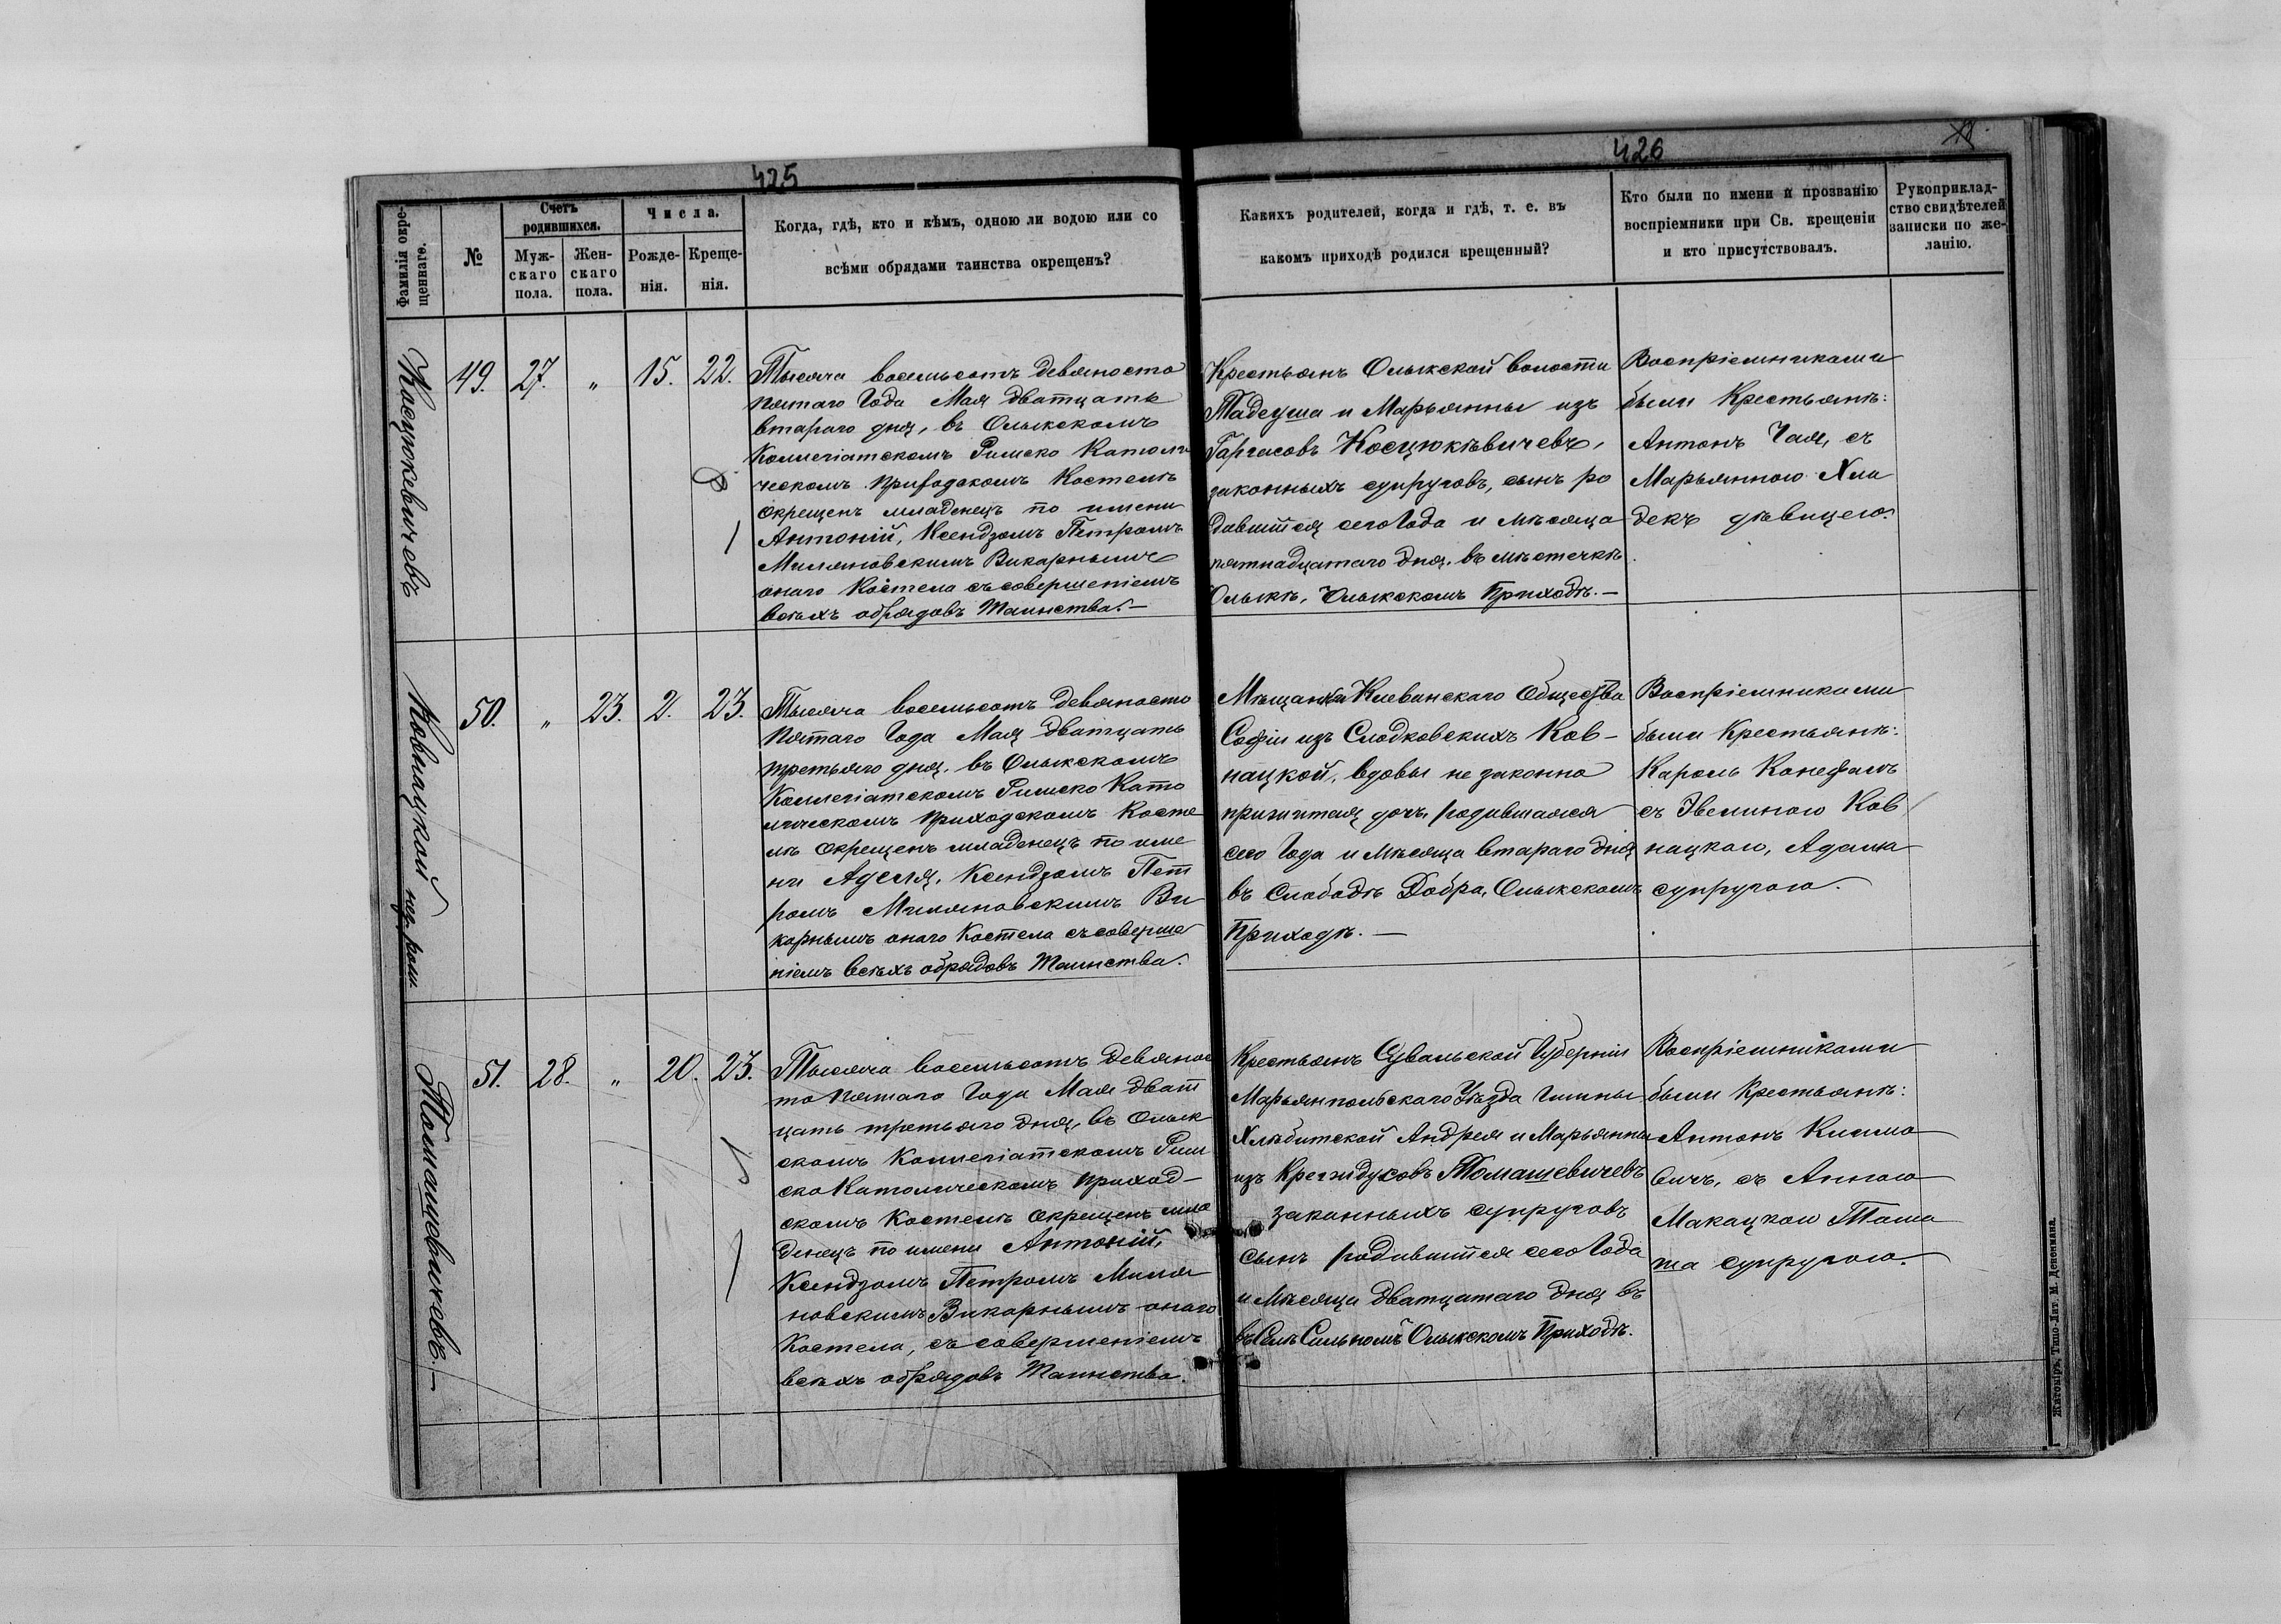 425
Фамилія окре-
щеннаго.
№
Счетъ
родившихся.
Муж-
скаго
пола.
Жен-
скаго
пола.
Числа.
Рожде-
нія.
Креще-
нія.
Когда, гдѣ, кто и кѣмъ, одною ли водою или со
всѣми обрядами таинства окрещенъ?
426
Какихъ родителей, когда и гдѣ, т. е. въ
какомъ приходѣ родился крещенный?
Кто были по имени и прозванію
воспріемники при Св. крещеніи
и кто присутствовалъ.
Рукоприклад-
ство свидѣтелей
записки по же-
ланію.
Косцюкевичовъ
49. 27. „ 15. 22.
Тысяча восемьсотъ девяносто
пятаго Года Мая дватцать
втараго дня, въ Олыкскомъ
Коллегіатскомъ Римско Католи
ческомъ приходскомъ Костелѣ
окрещенъ младенецъ по имени
Антоній, Ксендзомъ Петромъ
Миляновскимъ Викарнымъ
онаго Костела съ совершеніемъ
всѣхъ обрядовъ Таинства.—
Крестьянъ Олыкской волости
Тадеуша и Марьянны изъ
Гаргасовъ Косцюкѣвичевъ,
законныхъ супруговъ, сынъ ро
дившійся сего Года и Мѣсяца
пятнадцатаго дня, въ мѣстечкѣ
Олыкѣ, Олыкскомъ Приходѣ.—
Воспріемниками
были Крестьянѣ:
Антонъ Чая, съ
Марьянною Хла
декъ дѣвицею.
Ковнацкой
50. „ 23. 2. 23.
Тысяча восемьсотъ девяносто
пятаго Года Мая дватцать
третьяго дня, въ Олыкскомъ
Коллегіатскомъ Римско Като
лическомъ приходскомъ Косте
лѣ окрещенъ младенецъ по име
ни Аделя, Ксендзомъ Пет
ромъ Миляновскимъ Ви
карнымъ онаго Костела съ соверше
ніемъ всѣхъ обрядовъ Таинства.
Мѣщанки Клеванскаго Общества
Софіи изъ Слодковскихъ Ков-
нацкой, вдовы не законно
прижитая дочь, родившаяся
сего Года и Мѣсяца втараго дня
въ Слободѣ Добра, Олыкскомъ
Приходѣ.—
Воспріемниками
были Крестьянѣ:
Кароль Конефалъ
съ Эвелиною Ков
нацкою, Адама
супругою.
Томашевичевъ.—
51. 28. „ 20. 23.
Тысяча восемьсотъ девянос
то пятаго Года Мая дват
цать третьяго дня, въ Олык
скомъ Коллегіатскомъ Рим
ско Католическомъ приход-
скомъ Костелѣ окрещенъ мла
денецъ по имени Антоній,
Ксендзомъ Петромъ Миля
новскимъ Викарнымъ онаго
Костела, съ совершеніемъ
всѣхъ обрядовъ Таинства.
Крестьянъ Сувальской Губерніи
Марьянпольскаго Уѣзда Гмины
Хлѣбитской Андрея и Марьянны
изъ Томашевичевъ
законныхъ супруговъ
сынъ родившійся сего Года
и Мѣсяца дватцатаго дня въ
въ Селѣ Сильномъ Олыкскомъ Приходѣ.
Воспріемниками
были Крестьянѣ:
Антонъ Климо
вичъ, съ Анною
Макацкою Тома
ша супругою.
Житоміръ, Типо-Лит. М. Дененмана.